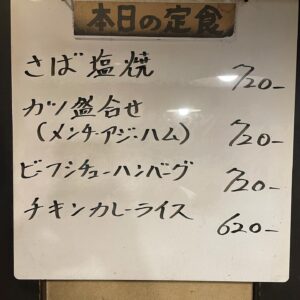 本日の定食
さば塩焼 720-
カツ盛合せ
(メンチ・アジ・ハム) 720-
ビーフシチューハンバーグ 720-
チキンカレーライス 620-